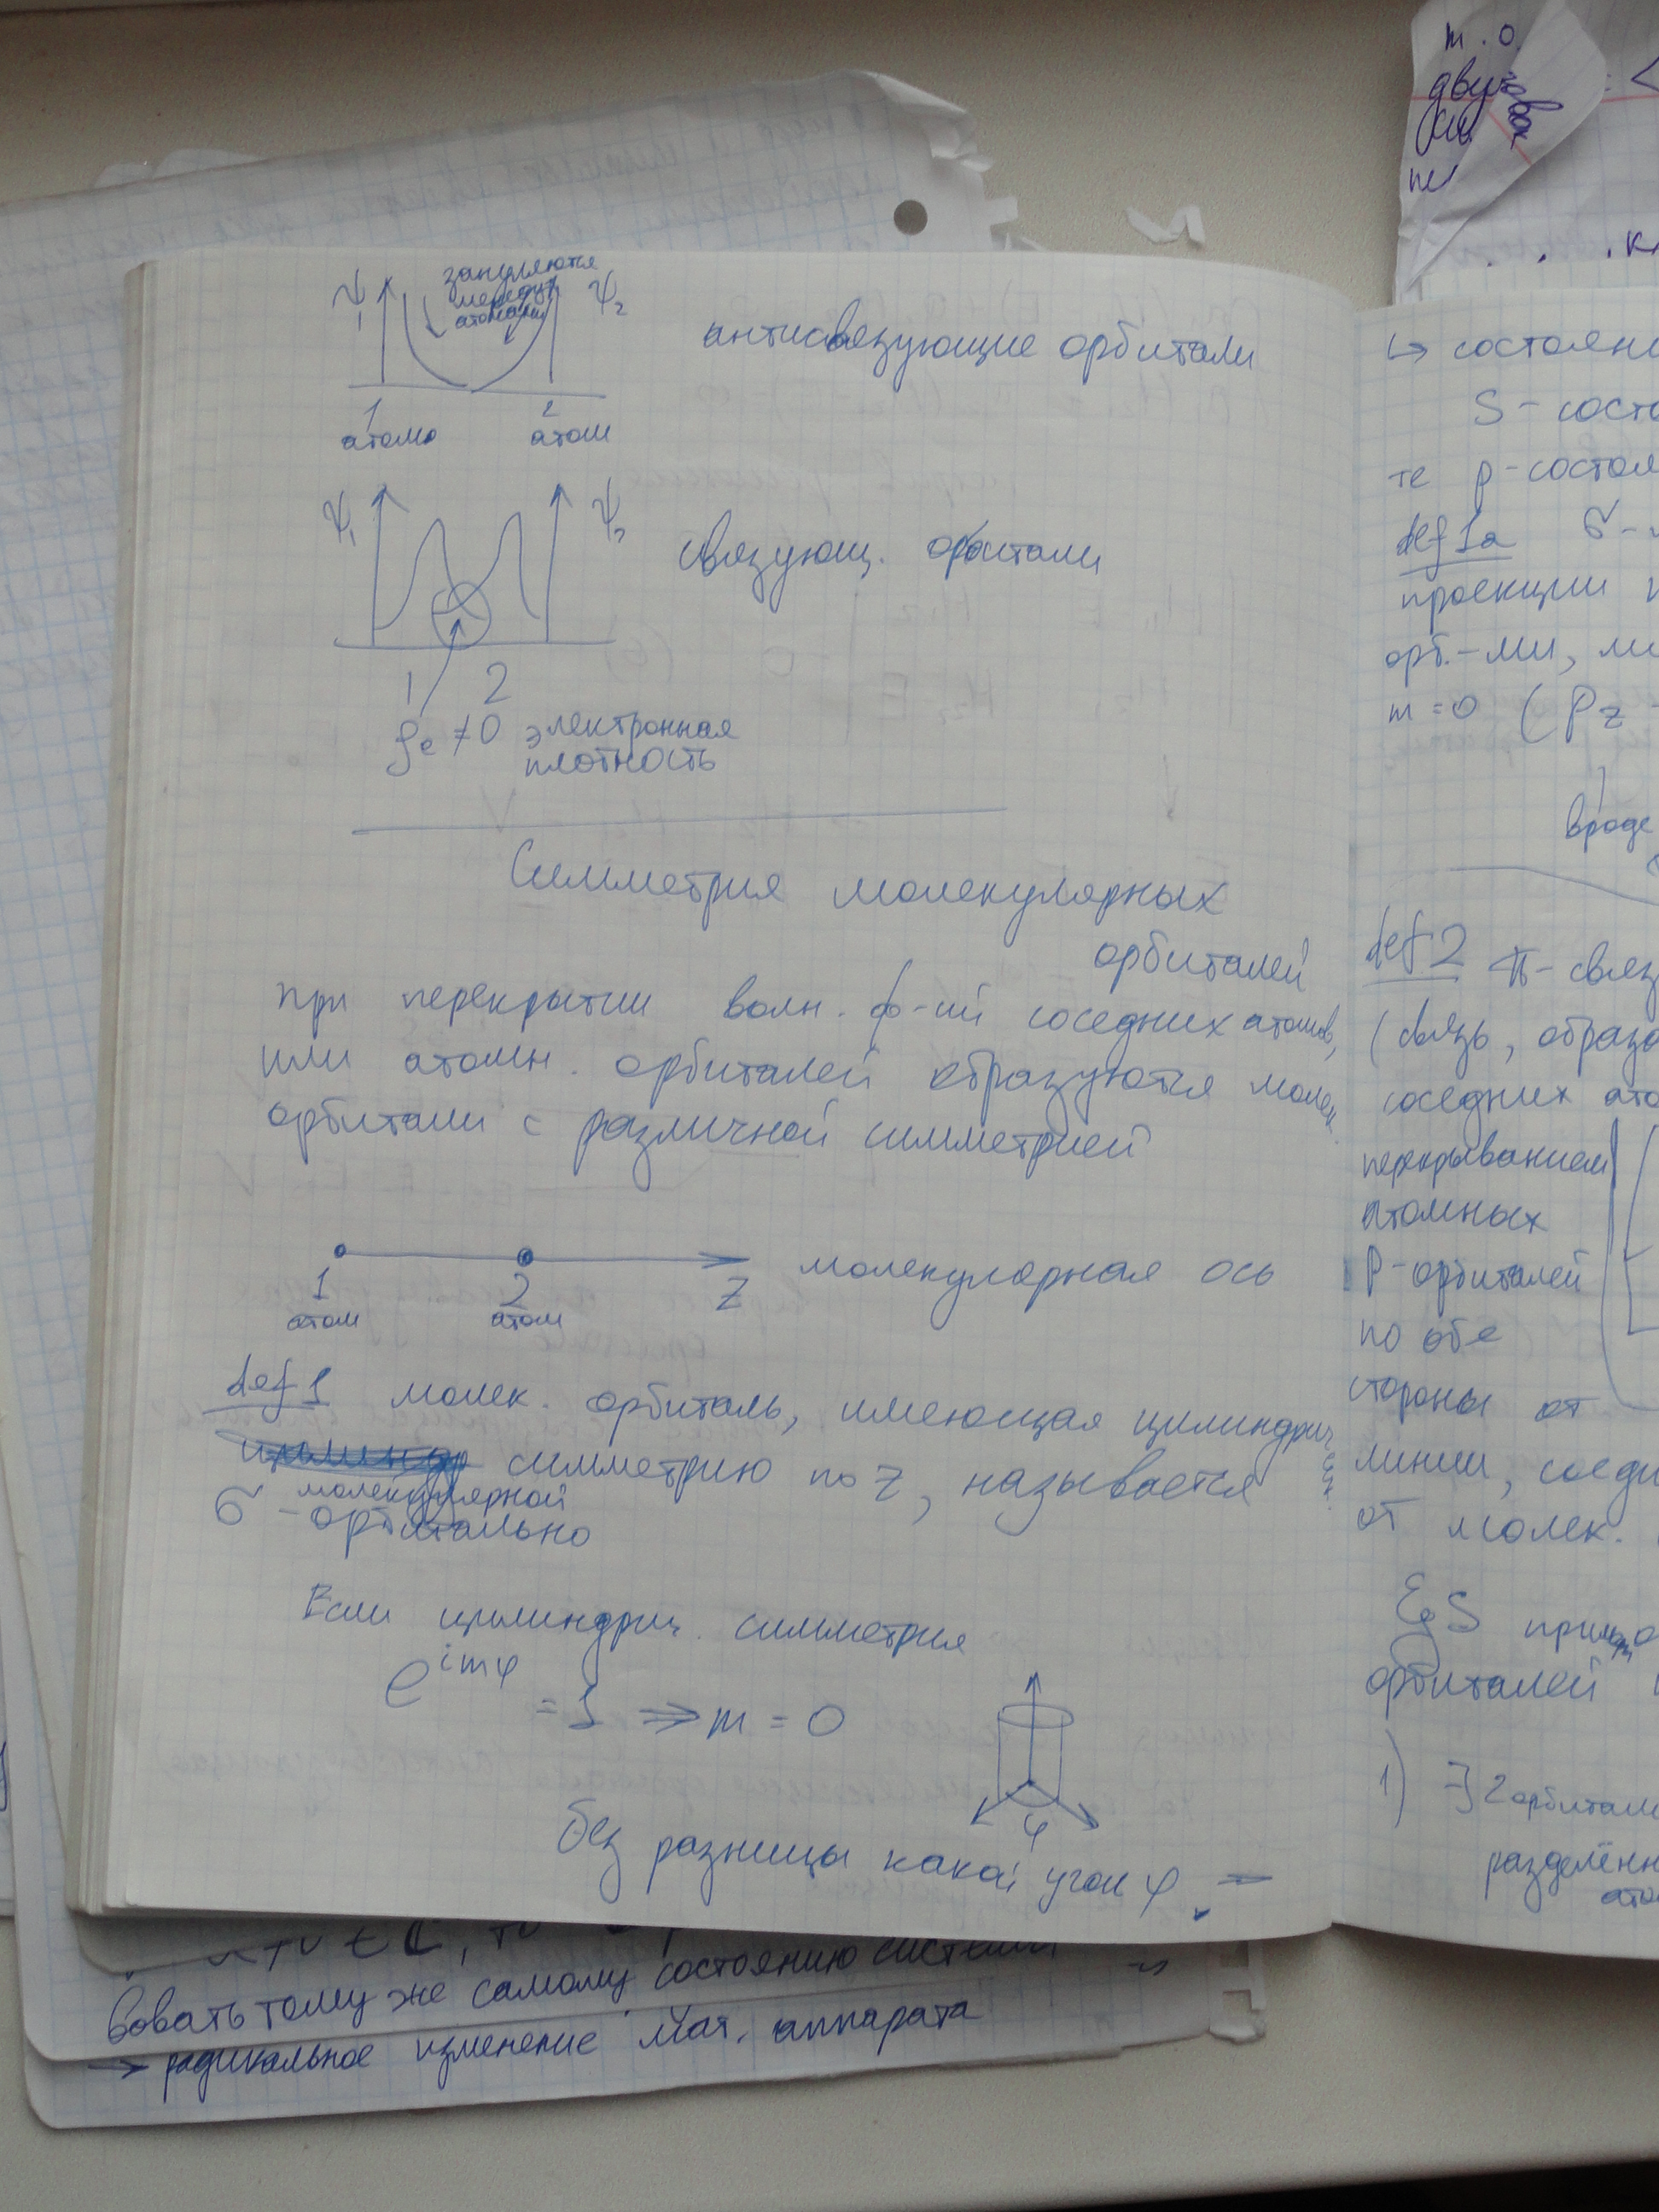 ψ₁ зануляются ψ₂
между
атомами
антисвязующие орбитали
1 2
атом атом
ψ₁ ψ₂
связующ. орбитали
1 2
ρe ≠ 0 электронная
плотность
Симметрия молекулярных
орбиталей
при перекрытии волн. ф-ий соседних атомов,
или атомн. орбиталей образуются молек.
орбитали с различной симметрией
1 2 Z молекулярная ось
атом атом
def 1 молек. орбиталь, имеющая цилиндрич
симметрию по Z, называется
молекулярной
σ - орбиталью
Если цилиндрич. симметрия
e^{imφ} = 1 ⇒ m = 0
φ
без разницы какой угол φ
↳ состояни
S - состо
те p - состоя
def 1a σ -
проекции
орб.-ми, ли
m = 0 ( Pz
вроде
def 2 π - связ
(связь, образо
соседних ато
перекрыванием
атомных
P - орбиталей
по обе
стороны от
линии, соеди
от молек.
орбиталей
1) ∃ 2 орбитали
разделённ
ато
т. о.
двух
вовать тому же самому состоянию системы
→ радикальное изменение мат. аппарата